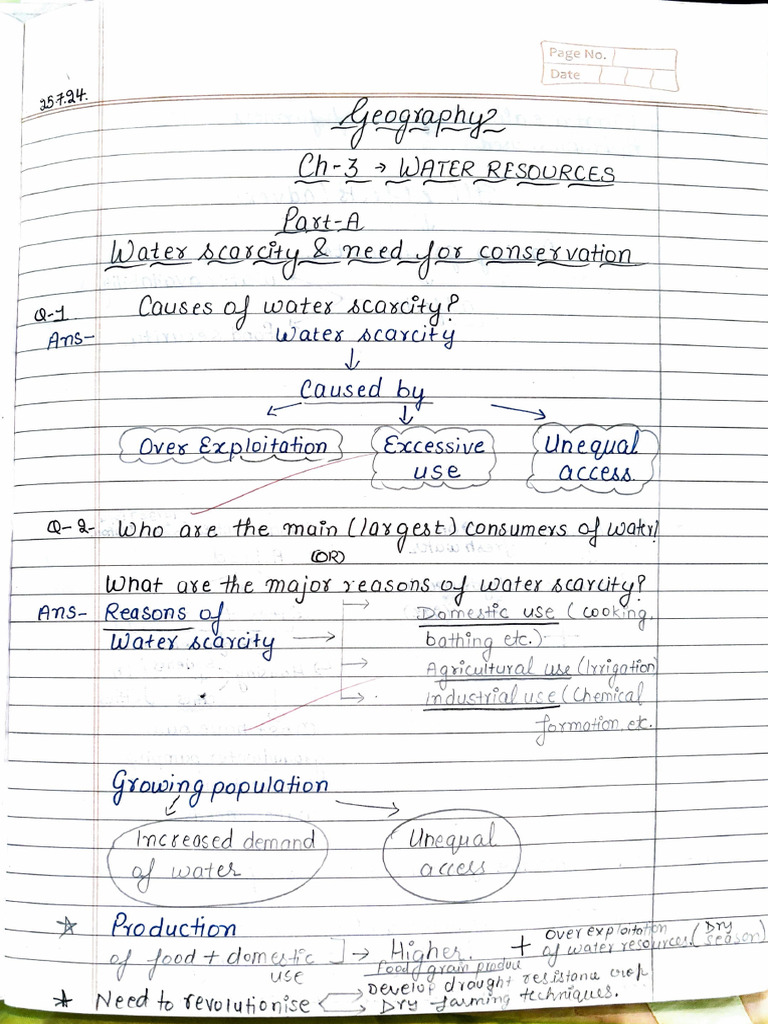 Page No.
Date
25.7.24.
Geography
Ch-3 → WATER RESOURCES
Part-A
Water scarcity & need for conservation
Q-1 Causes of water scarcity?
Ans- Water scarcity
↓
Caused by
Over Exploitation Excessive use Unequal access
Q-2- Who are the main (largest) consumers of water?
(OR)
What are the major reasons of water scarcity?
Ans- Reasons of Water scarcity →
→ Domestic use (cooking,
bathing etc.)
→ Agricultural use (Irrigation)
→ Industrial use (Chemical
formation, etc.
Growing population
Increased demand of water Unequal access
☆ Production
of food + domestic use ] → Higher Food grain produce + over exploitation of water resources. (Dry season)
★ Need to revolutionise → Develop drought resistance crop
→ Dry farming techniques.